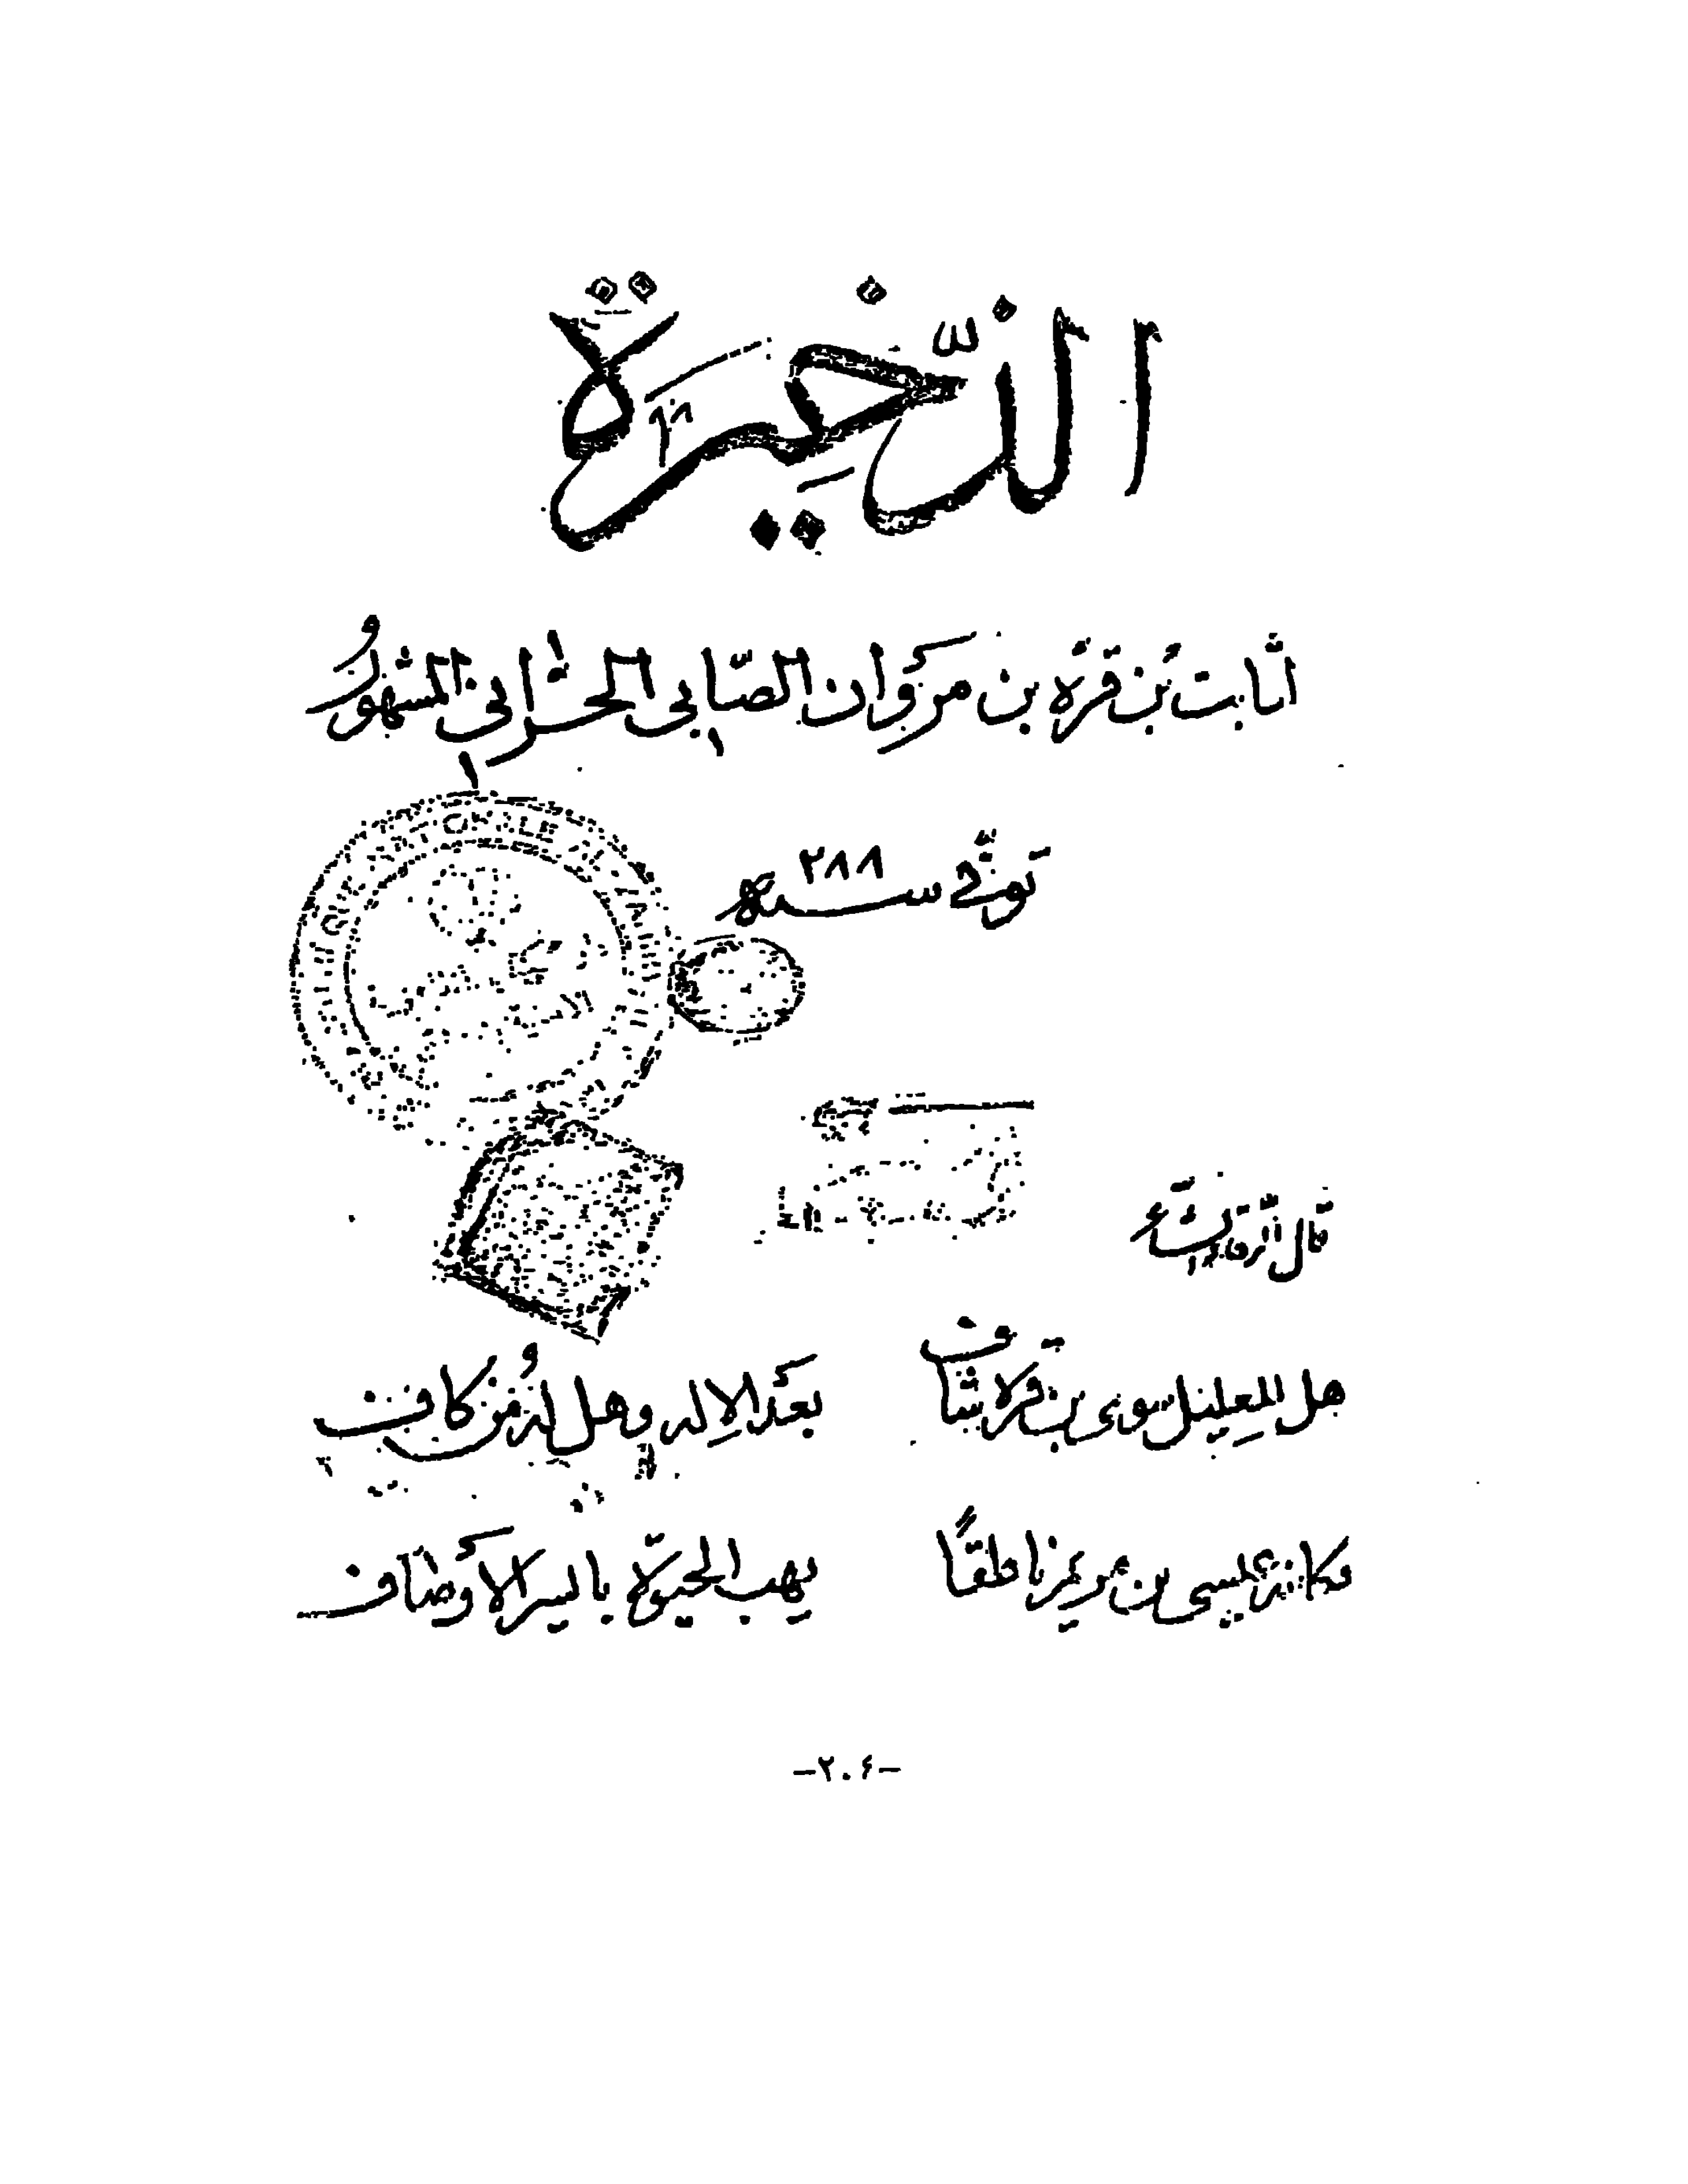 الذّخِيرَة
لثابت بن قرة بن مروان الصّابي الحرّاني المشهورُ
توفّي سنة ٢٨٨
قال الشاعر
هل للعليل سوى بن قرة شاف بعد الإله وهل له من كاف
فكانه عيسى بن مريم ناطقاً يهب الحيوة باليسر الأوصاف
-٢٠٤-